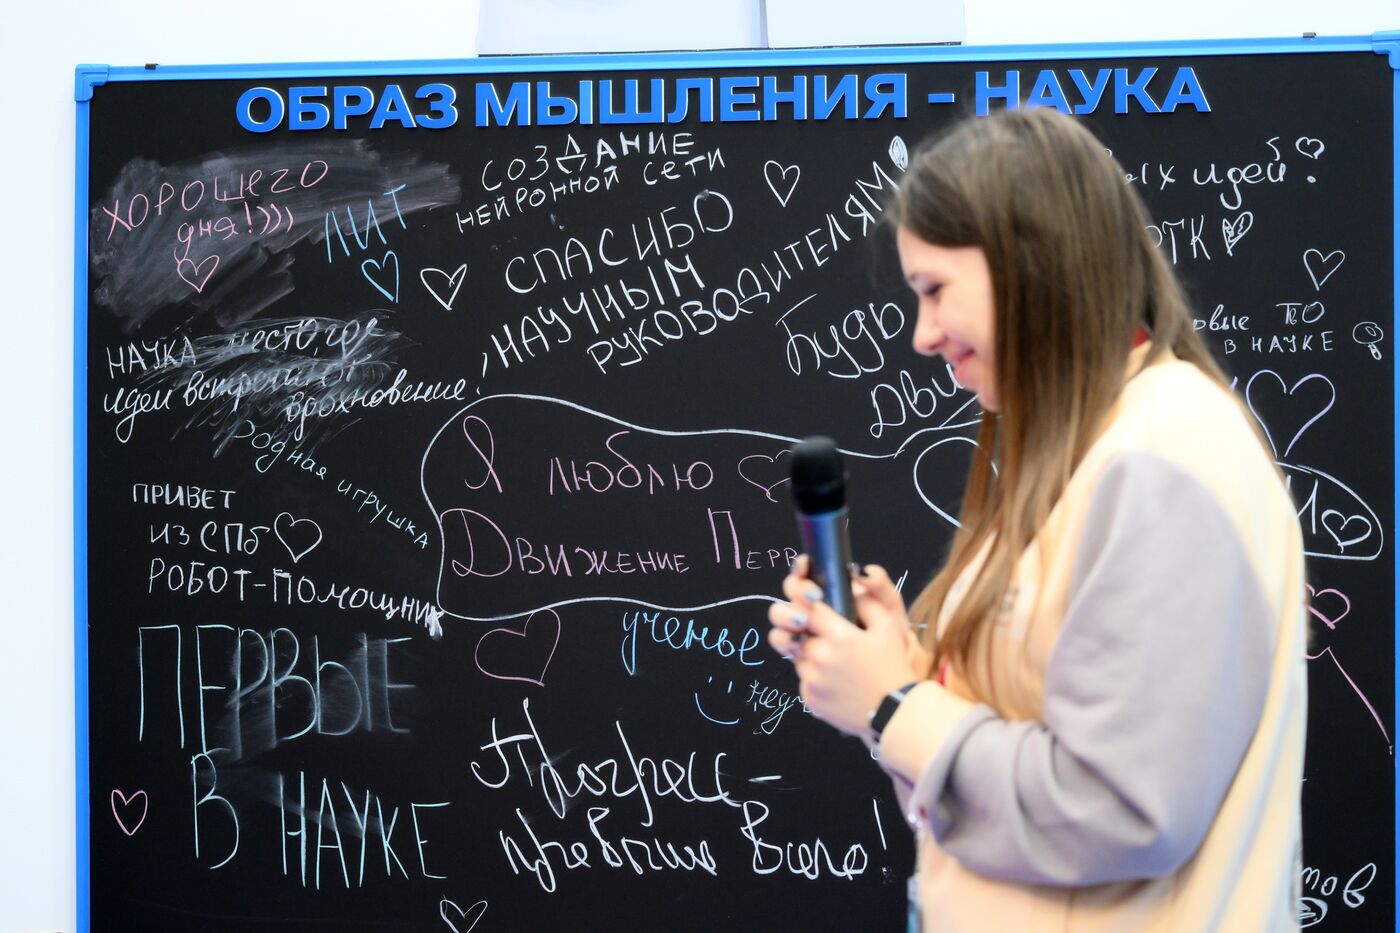 ОБРАЗ МЫШЛЕНИЯ - НАУКА
ХОРОШЕГО
дня!)))
ЛИТ
СОЗДАНИЕ
НЕЙРОННОЙ СЕТИ
СПАСИБО
НАУЧНЫМ
РУКОВОДИТЕЛЯМ!
идей!
РТК
ПО
В НАУКЕ
Будь
НАУКА место, где
идеи встречают
вдохновение.
родная игрушка
Я люблю
Движение Перв
ПРИВЕТ
ИЗ СПб
РОБОТ-ПОМОЩНИК
ПЕРВЫЕ
В НАУКЕ
ученье
Прогресс -
превыше всего!